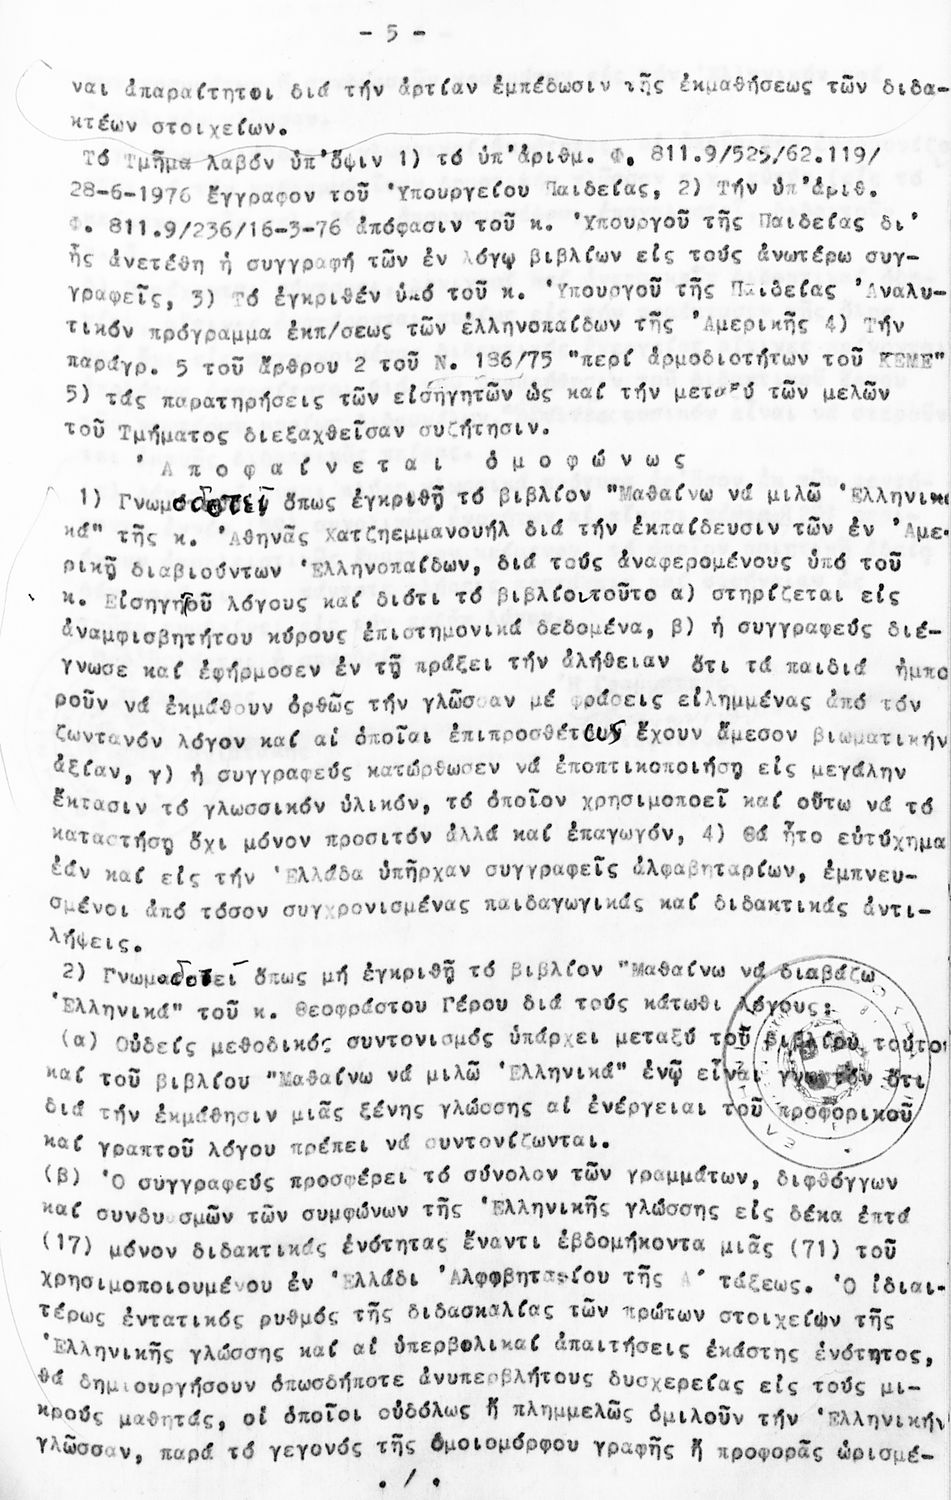 - 5 -
ναι ἀπαραίτητοι διά τήν ἀρτίαν ἐμπέδωσιν τῆς ἐκμαθήσεως τῶν διδα-
κτέων στοιχείων.
Τό Τμῆμα λαβόν ὑπ'ὄψιν 1) τό ὑπ'ἀριθμ. Φ. 811.9/525/62.119/
28-6-1976 ἔγγραφον τοῦ Ὑπουργείου Παιδείας, 2) Τήν ὑπ'ἀριθ.
Φ. 811.9/236/16-3-76 ἀπόφασιν τοῦ κ. Ὑπουργοῦ τῆς Παιδείας δι'
ἧς ἀνετέθη ἡ συγγραφή τῶν ἐν λόγῳ βιβλίων εἰς τούς ἀνωτέρω συγ-
γραφεῖς, 3) Τό ἐγκριθέν ὑπό τοῦ κ. Ὑπουργοῦ τῆς Παιδείας Ἀναλυ-
τικόν πρόγραμμα ἐκπ/σεως τῶν ἑλληνοπαίδων τῆς Ἀμερικῆς 4) Τήν
παράγρ. 5 τοῦ ἄρθρου 2 τοῦ Ν. 186/75 "περί ἁρμοδιοτήτων τοῦ ΚΕΜΕ"
5) τάς παρατηρήσεις τῶν εἰσηγητῶν ὡς καί τήν μεταξύ τῶν μελῶν
τοῦ Τμήματος διεξαχθεῖσαν συζήτησιν.
Ἀ π ο φ α ί ν ε τ α ι ὁ μ ο φ ώ ν ω ς
1) Γνωμοδοτεῖ ὅπως ἐγκριθῇ τό βιβλίον "Μαθαίνω νά μιλῶ Ἑλληνικ
κά" τῆς κ. Ἀθηνᾶς Χατζηεμμανουήλ διά τήν ἐκπαίδευσιν τῶν ἐν Ἀμε-
ρικῇ διαβιούντων Ἑλληνοπαίδων, διά τούς ἀναφερομένους ὑπό τοῦ
κ. Εἰσηγητοῦ λόγους καί διότι τό βιβλίον τοῦτο α) στηρίζεται εἰς
ἀναμφισβητήτου κύρους ἐπιστημονικά δεδομένα, β) ἡ συγγραφεύς διέ-
γνωσε καί ἐφήρμοσεν ἐν τῇ πράξει τήν ἀλήθειαν ὅτι τά παιδιά ἠμπο
ροῦν νά ἐκμάθουν ὀρθῶς τήν γλῶσσαν μέ φράσεις εἰλημμένας ἀπό τόν
ζωντανόν λόγον καί αἱ ὁποῖαι ἐπιπροσθέτως ἔχουν ἄμεσον βιωματικήν
ἀξίαν, γ) ἡ συγγραφεύς κατώρθωσεν νά ἐποπτικοποιήσῃ εἰς μεγάλην
ἔκτασιν τό γλωσσικόν ὑλικόν, τό ὁποῖον χρησιμοποεῖ καί οὕτω νά τό
καταστήσῃ ὄχι μόνον προσιτόν ἀλλά καί ἐπαγωγόν, 4) θά ἦτο εὐτύχημα
ἐάν καί εἰς τήν Ἑλλάδα ὑπῆρχαν συγγραφεῖς ἀλφαβηταρίων, ἐμπνευ-
σμένοι ἀπό τόσον συγχρονισμένας παιδαγωγικάς καί διδακτικάς ἀντι-
λήψεις.
2) Γνωμοδοτεῖ ὅπως μή ἐγκριθῇ τό βιβλίον "Μαθαίνω νά διαβάζω
Ἑλληνικά" τοῦ κ. Θεοφράστου Γέρου διά τούς κάτωθι λόγους:
(α) Οὐδείς μεθοδικός συντονισμός ὑπάρχει μεταξύ τοῦ βιβλίου τούτο
καί τοῦ βιβλίου "Μαθαίνω νά μιλῶ Ἑλληνικά" ἐνῷ εἶναι γνωστόν ὅτι
διά τήν ἐκμάθησιν μιᾶς ξένης γλώσσης αἱ ἐνέργειαι τοῦ προφορικοῦ
καί γραπτοῦ λόγου πρέπει νά συντονίζωνται.
(β) Ὁ συγγραφεύς προσφέρει τό σύνολον τῶν γραμμάτων, διφθόγγων
καί συνδυασμῶν τῶν συμφώνων τῆς Ἑλληνικῆς γλώσσης εἰς δέκα ἑπτά
(17) μόνον διδακτικάς ἑνότητας ἔναντι ἑβδομήκοντα μιᾶς (71) τοῦ
χρησιμοποιουμένου ἐν Ἑλλάδι Ἀλφφβηταρίου τῆς Α' τάξεως. Ὁ ἰδιαι-
τέρως ἐντατικός ρυθμός τῆς διδασκαλίας τῶν πρώτων στοιχείων τῆς
Ἑλληνικῆς γλώσσης καί αἱ ὑπερβολικαί ἀπαιτήσεις ἑκάστης ἑνότητος,
θά δημιουργήσουν ὁπωσδήποτε ἀνυπερβλήτους δυσχερείας εἰς τούς μι-
κρούς μαθητάς, οἱ ὁποῖοι οὐδόλως ἤ πλημμελῶς ὁμιλοῦν τήν Ἑλληνικήν
γλῶσσαν, παρά τό γεγονός τῆς ὁμοιομόρφου γραφῆς ἤ προφορᾶς ὡρισμέ-
. / .